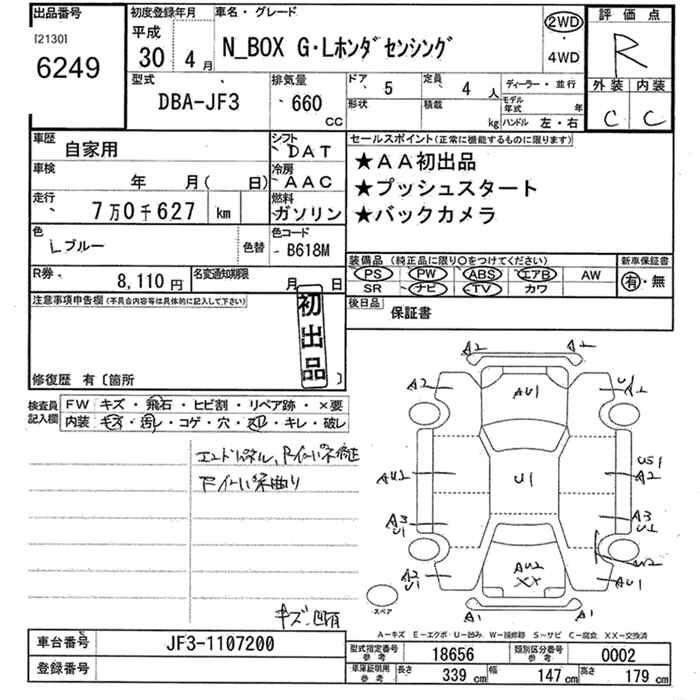 出品番号 初度登録年月 車名・グレード 評価点
[2130] 平成
6249 30年 4月 N_BOX G・Lホンダセンシング 2WD ・ 4WD R
型式 排気量 ドア 5 定員 4 人 ディーラー・並行 外装 内装
DBA-JF3 660 CC 形状 積載 kg モデル年式 年 ハンドル 左・右 C C
車歴 自家用 シフト DAT セールスポイント(正常に機能するものに限ります)
車検 年 月( 日) 冷房 AAC ★AA初出品
走行 7万0千627 km 燃料 ガソリン ★プッシュスタート
★バックカメラ
色 Lブルー 色替 色コード B618M
装備品 (純正品に限り○をつけてください) 新車保証書
R券 8,110円 名変通知期限 月 日 PS PW ABS エアB AW 有・無
SR ナビ TV カワ
注意事項申告欄(不具合内容等は具体的に記入して下さい) 後日品 保証書
初出品
修復歴 有〔箇所 〕
検査員記入欄 FW キズ・飛石・ヒビ割・リペア跡・×要
内装 キズ・汚レ・コゲ・穴・凹・キレ・破レ
エンドパネル、
キズ、凹有
A2 A2
A2 AU1 U1 A2
AU1 U1 US1 A2
A3 U1 A3 U1
A2 U1 AU2 XX W2 AU1
A1 A1
スペア
A-キズ E-エクボ U-凹み W-補修跡 S-サビ C-腐食 XX-交換済
車台番号 JF3-1107200 型式指定番号 参考 18656 類別区分番号 参考 0002
登録番号 車庫証明用 参考 長さ 339 cm 幅 147 cm 高さ 179 cm